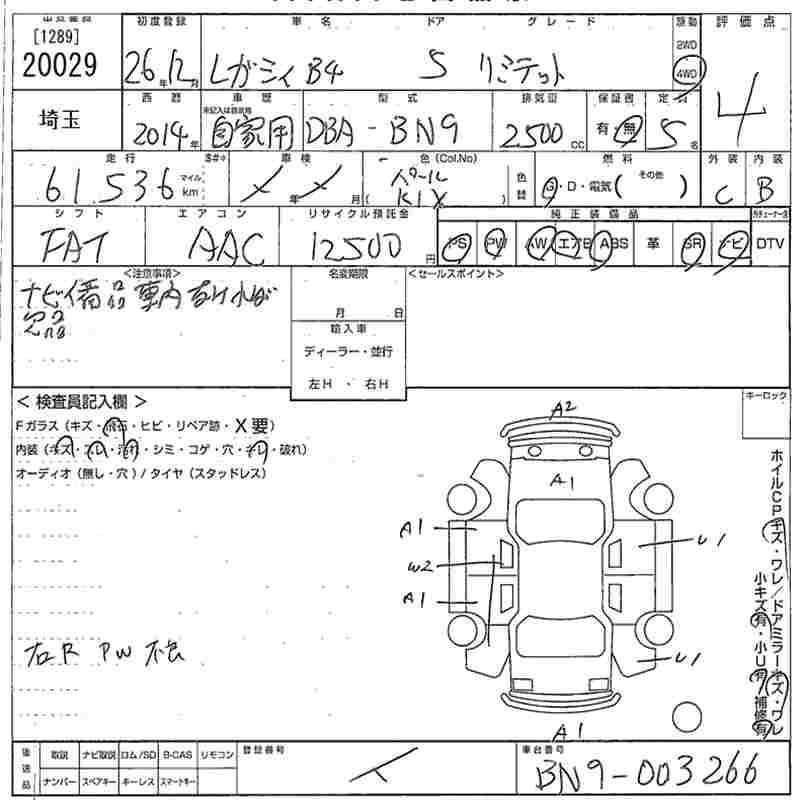 [1289]
20029
初度登録 車名 ドア グレード 駆動 評価点
26年12月 レガシィB4 S リミテット 2WD 4WD 4
埼玉
西暦 車歴 型式 排気量 保証書 定員
2014年 自家用 DBA-BN9 2500CC 有・無 5名
走行 車検 色(Col.No) 燃料 外装 内装
61,536 マイル km 年 月 パール K1X 色替 G・D・電気( その他 ) C B
シフト エアコン リサイクル預託金 純正装備品
FAT AAC 12500円 PS PW AW エアB ABS 革 SR ナビ DTV
<注意事項> 名変期限 <セールスポイント>
ナビ備品車内なければ
欠品
月 日
輸入車
ディーラー・並行
左H ・ 右H
< 検査員記入欄 > キーロック
Fガラス(キズ・飛石・ヒビ・リペア跡・X要)
内装(キズ・スレ・汚れ・シミ・コゲ・穴・キレ・破れ)
オーディオ(無し・穴)/タイヤ(スタッドレス)
A2
A1
A1 U1
W2
A1
U1
A1
右R PW 不良
ホイルCPキズ・ワレ/ドアミラーキズ・ワレ
小キズ有・小U有・補修有
後送品 取説 ナビ取説 ロム/SD B-CAS リモコン 登録番号 車台番号
ナンバー スペアキー キーレス スマートキー BN9-003266